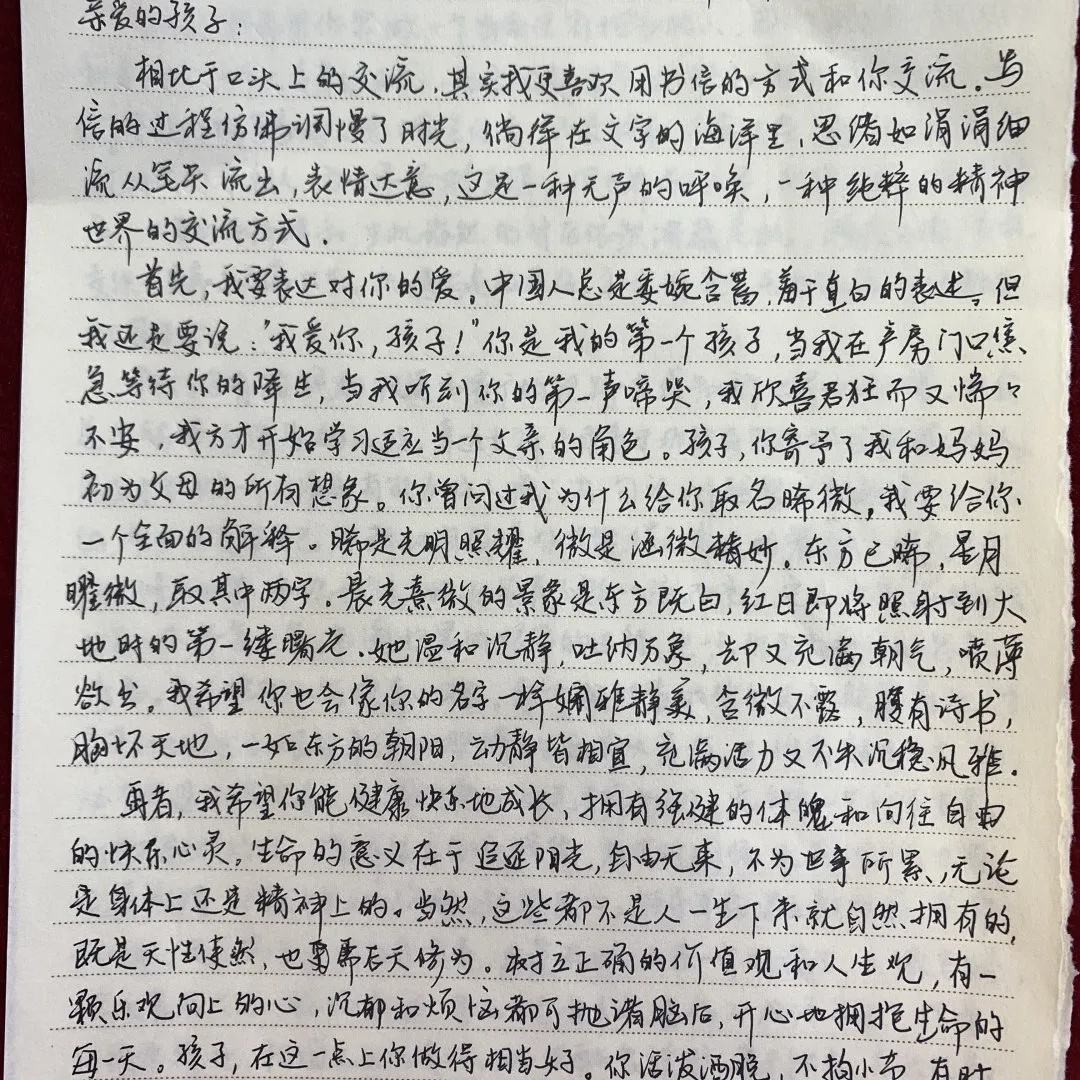 亲爱的孩子:
相比于口头上的交流,其实我更喜欢用书信的方式和你交流。写
信的过程仿佛调慢了时光,徜徉在文字的海洋里,思绪如涓涓细
流从笔尖流出,表情达意,这是一种无声的呼唤,一种纯粹的精神
世界的交流方式.
首先,我要表达对你的爱。中国人总是委婉含蓄,羞于直白的表述,但
我还是要说:"我爱你,孩子!"你是我的第一个孩子,当我在产房门口焦
急等待你的降生,当我听到你的第一声啼哭,我欣喜若狂而又惴々
不安,我方才开始学习适应当一个父亲的角色。孩子,你寄予了我和妈妈
初为父母的所有想象。你曾问过我为什么给你取名晞微,我要给你
一个全面的解释。晞是光明照耀,微是涵微精妙。东方已晞,星月
曜微,取其中两字。晨光熹微的景象是东方既白,红日即将照射到大
地时的第一缕曙光.她温和沉静,吐纳万象,却又充满朝气,喷薄
欲出。我希望你也会像你的名字一样娴雅静美,含微不露,腹有诗书,
胸怀天地,一如东方的朝阳,动静皆相宜,充满活力又不失沉稳风雅.
再者,我希望你能健康快乐地成长,拥有强健的体魄和向往自由
的快乐心灵。生命的意义在于追逐阳光,自由无束,不为世事所累,无论
是身体上还是精神上的。当然,这些都不是人一生下来就自然拥有的,
既是天性使然,也要靠后天修为。树立正确的价值观和人生观,有一
颗乐观向上的心,沉郁和烦恼都可抛诸脑后,开心地拥抱生命的
每一天。孩子,在这一点上你做得相当好。你活泼洒脱,不拘小节,有时